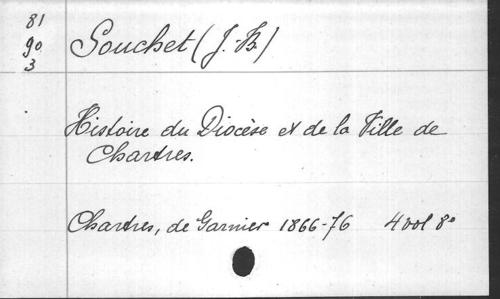 81
90
3
Souchet (J. B.)
Histoire du Diocèse et de la Ville de
Chartres.
Chartres, de Garnier 1866-76 4 vol 8°